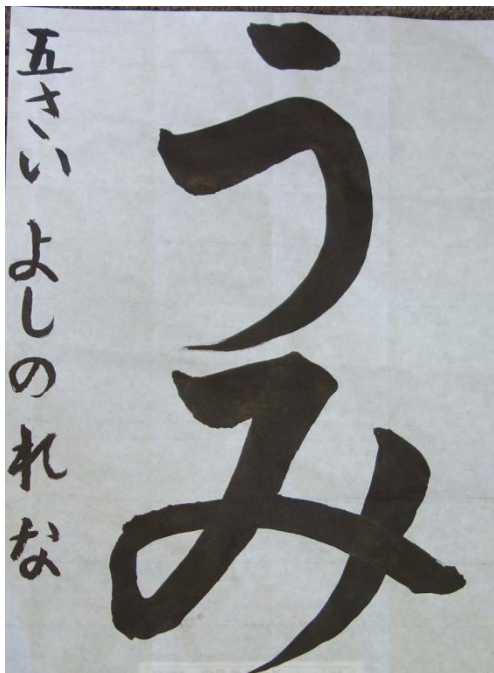 うみ
五さい よしの れな